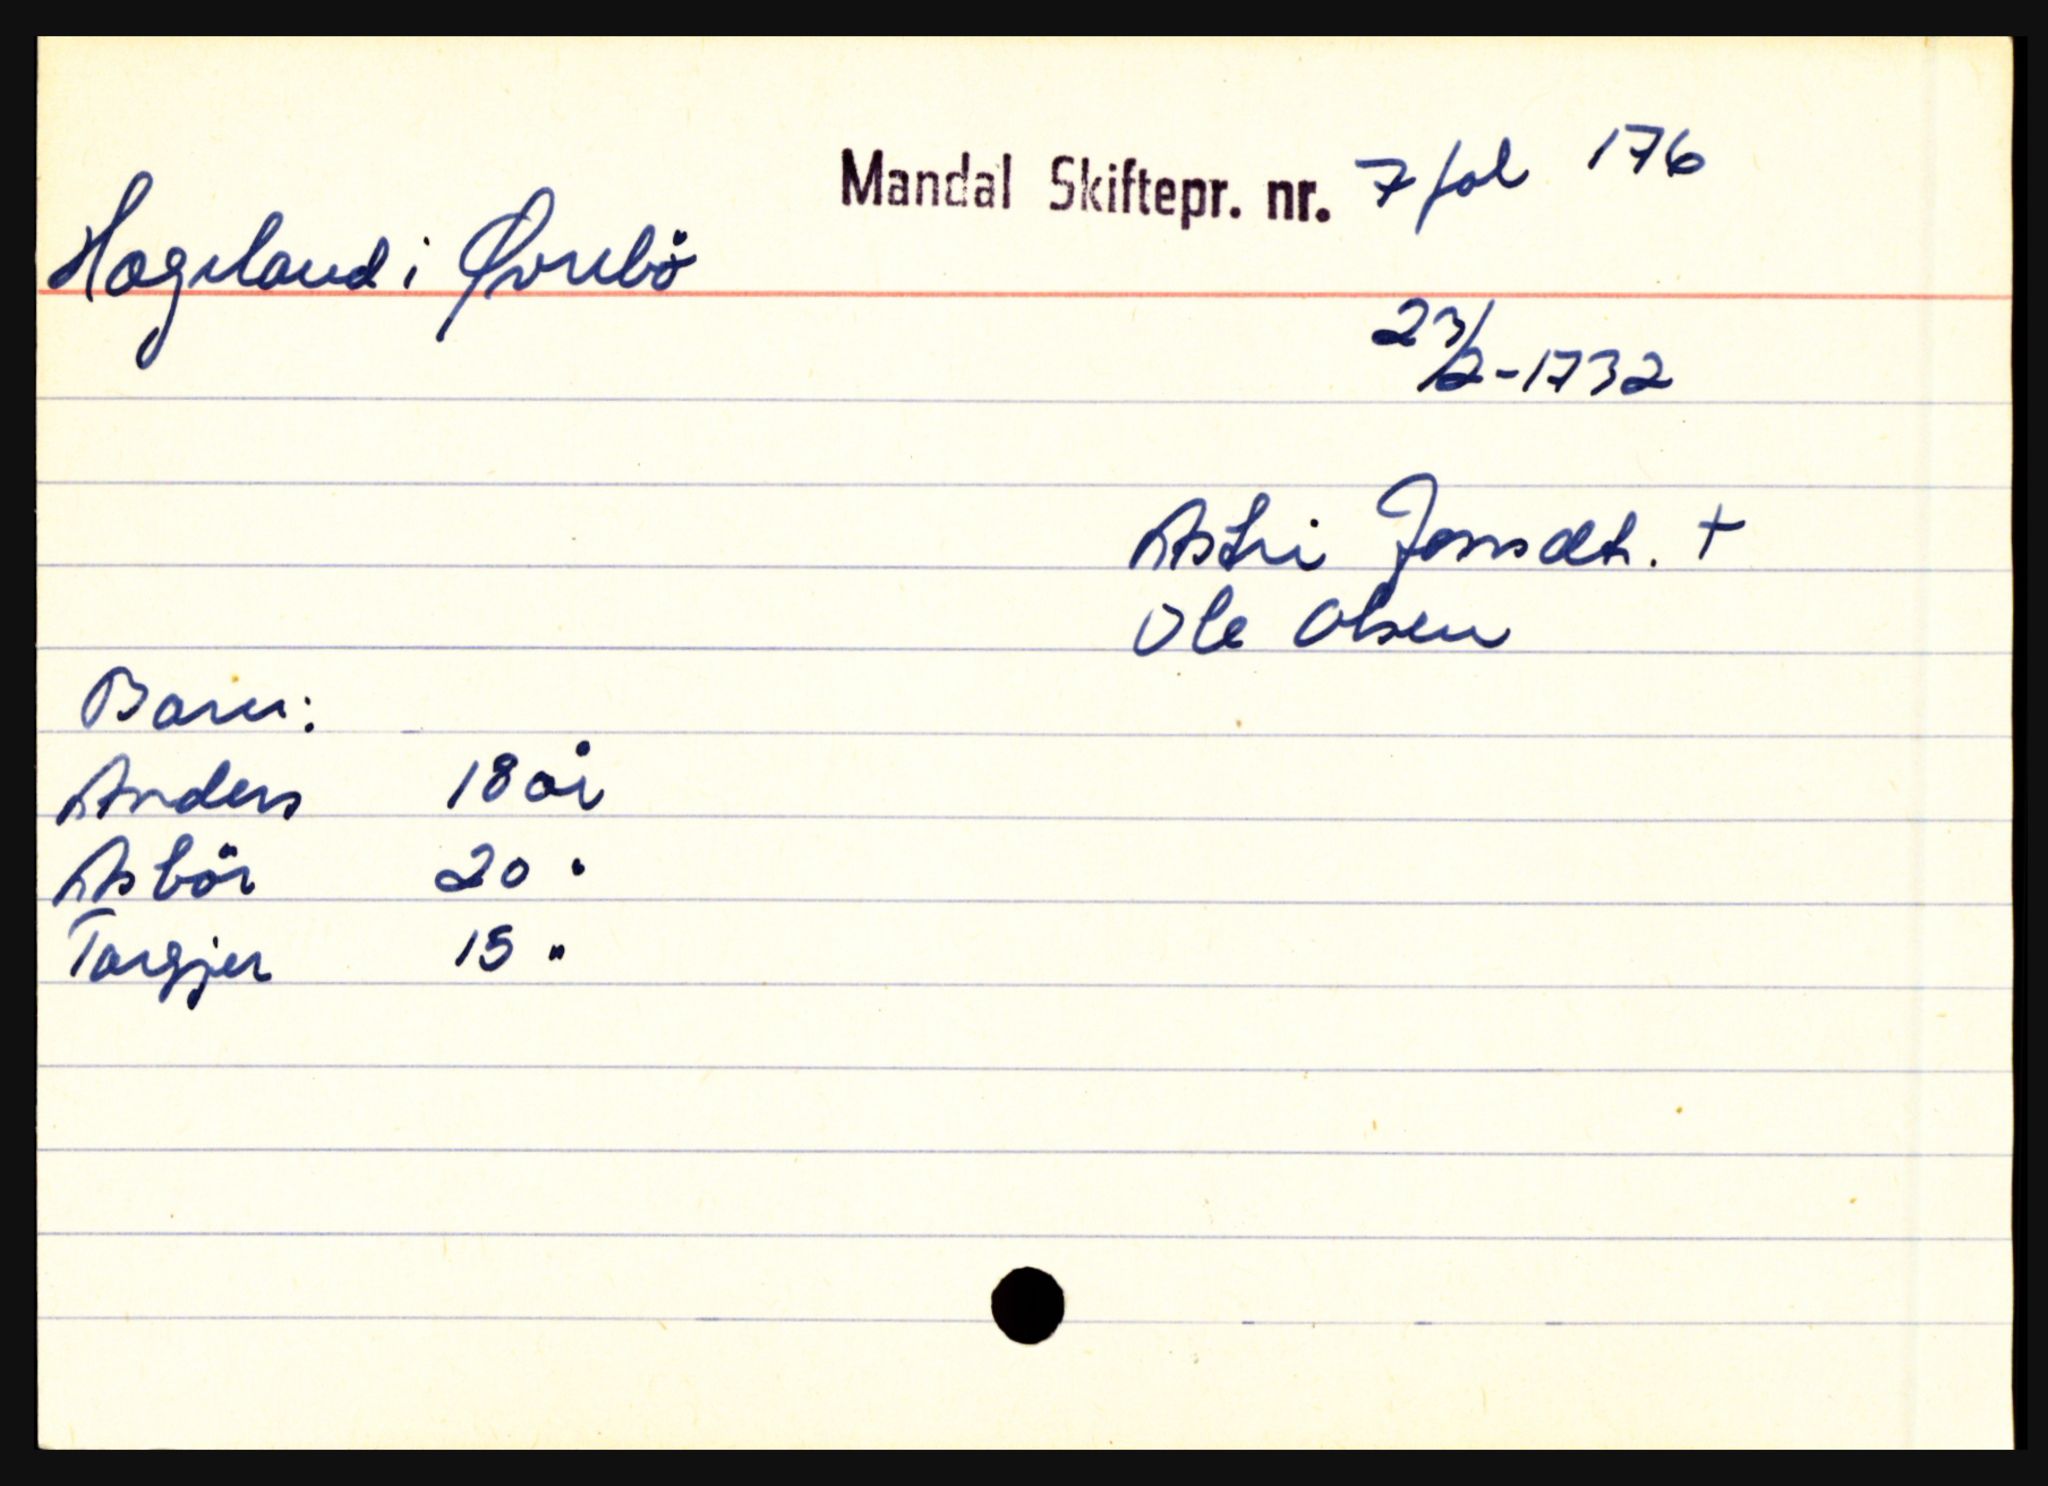 Mandal Skiftepr. nr. 7 fol 176
Hægeland i Øvrebö
23/2-1732
Astri Jonsdt. +
Ole Olsen
Barn:
Anders 18 år
Asbör 20 "
Targjer 15 "